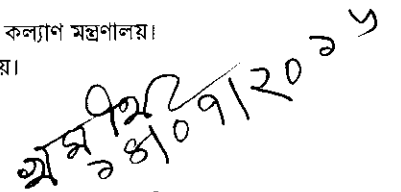 কল্যাণ মন্ত্রণালয়।
য়।
১৪/০৭/২০১৬